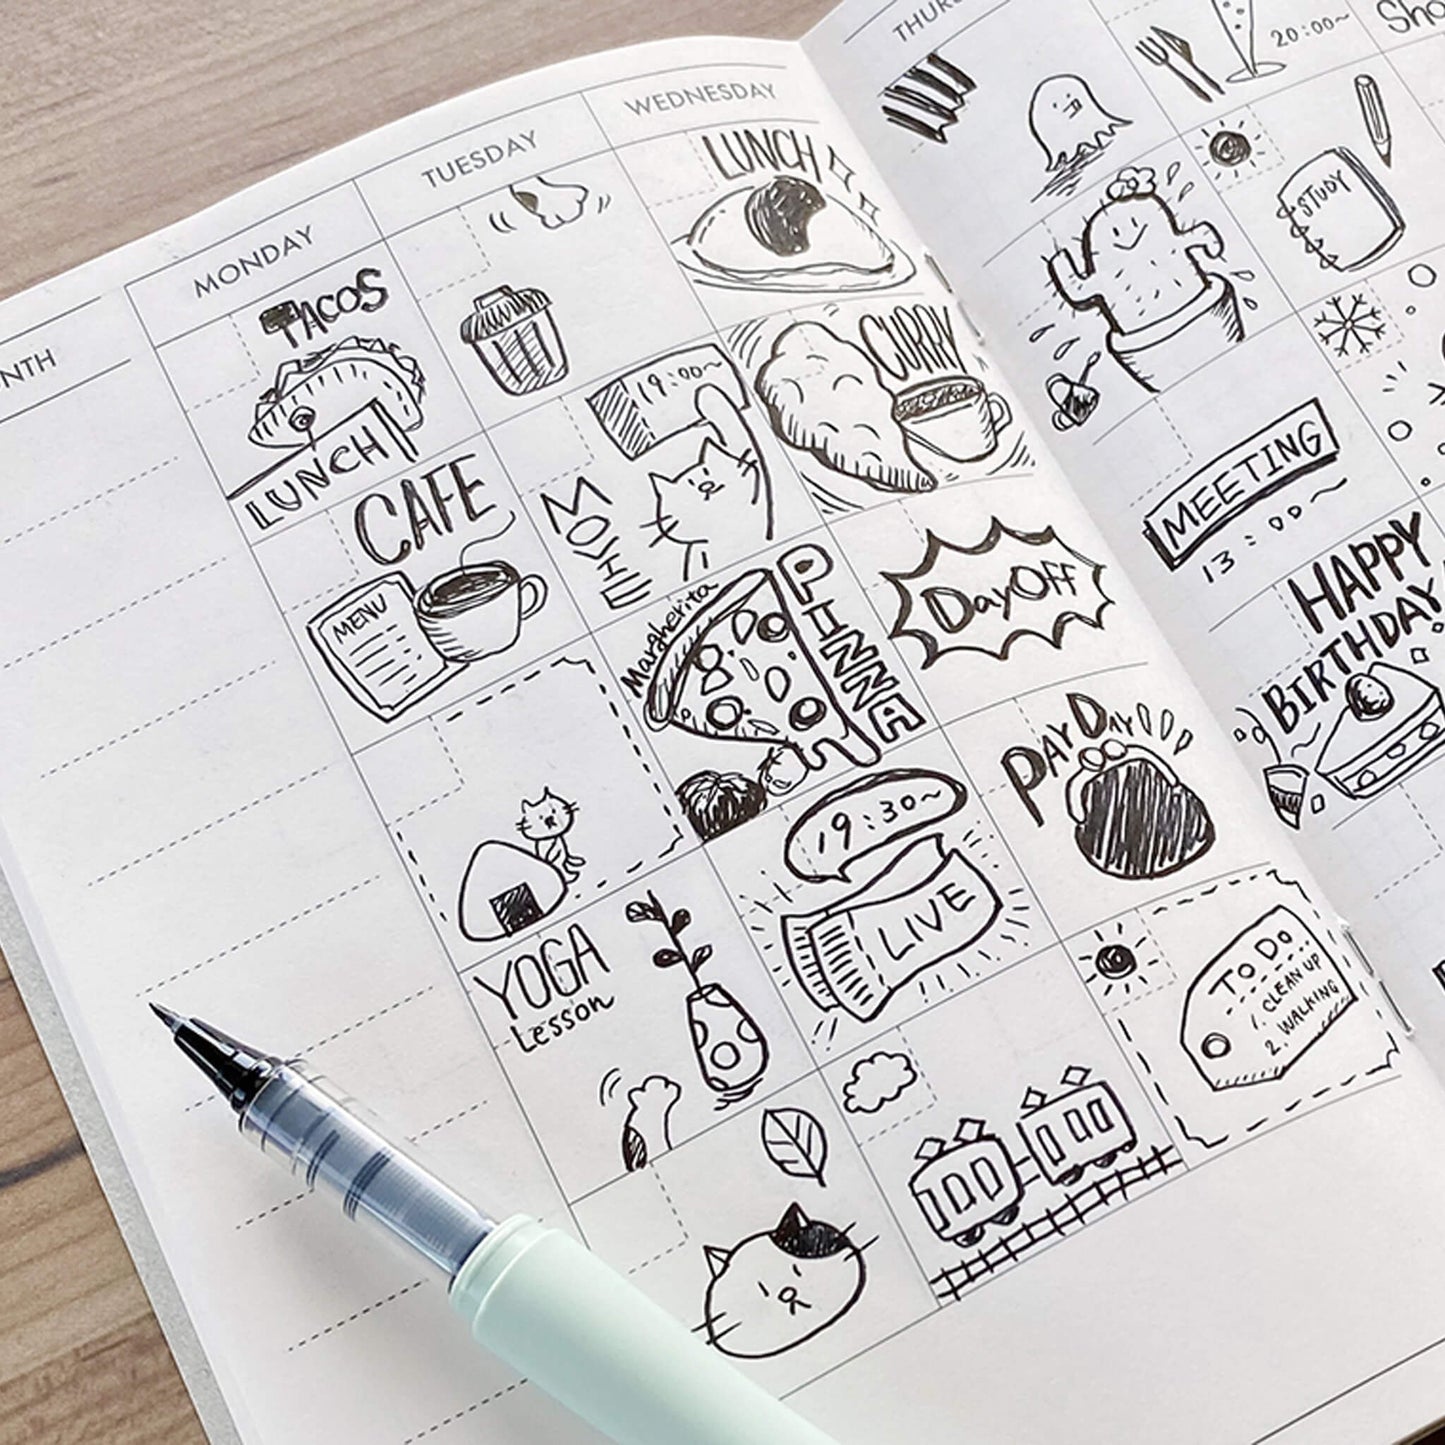 MONDAY
TUESDAY
WEDNESDAY
TACOS
LUNCH
LUNCH
CAFE
MENU
19:00~
MOVIE
CURRY
Margherita
PINNNA
DayOff
YOGA
Lesson
19:30~
LIVE
PAY DAY
TO DO
1. CLEAN UP
2. WALKING
20:00~
STUDY
MEETING
13:00~
HAPPY
BIRTHDAY